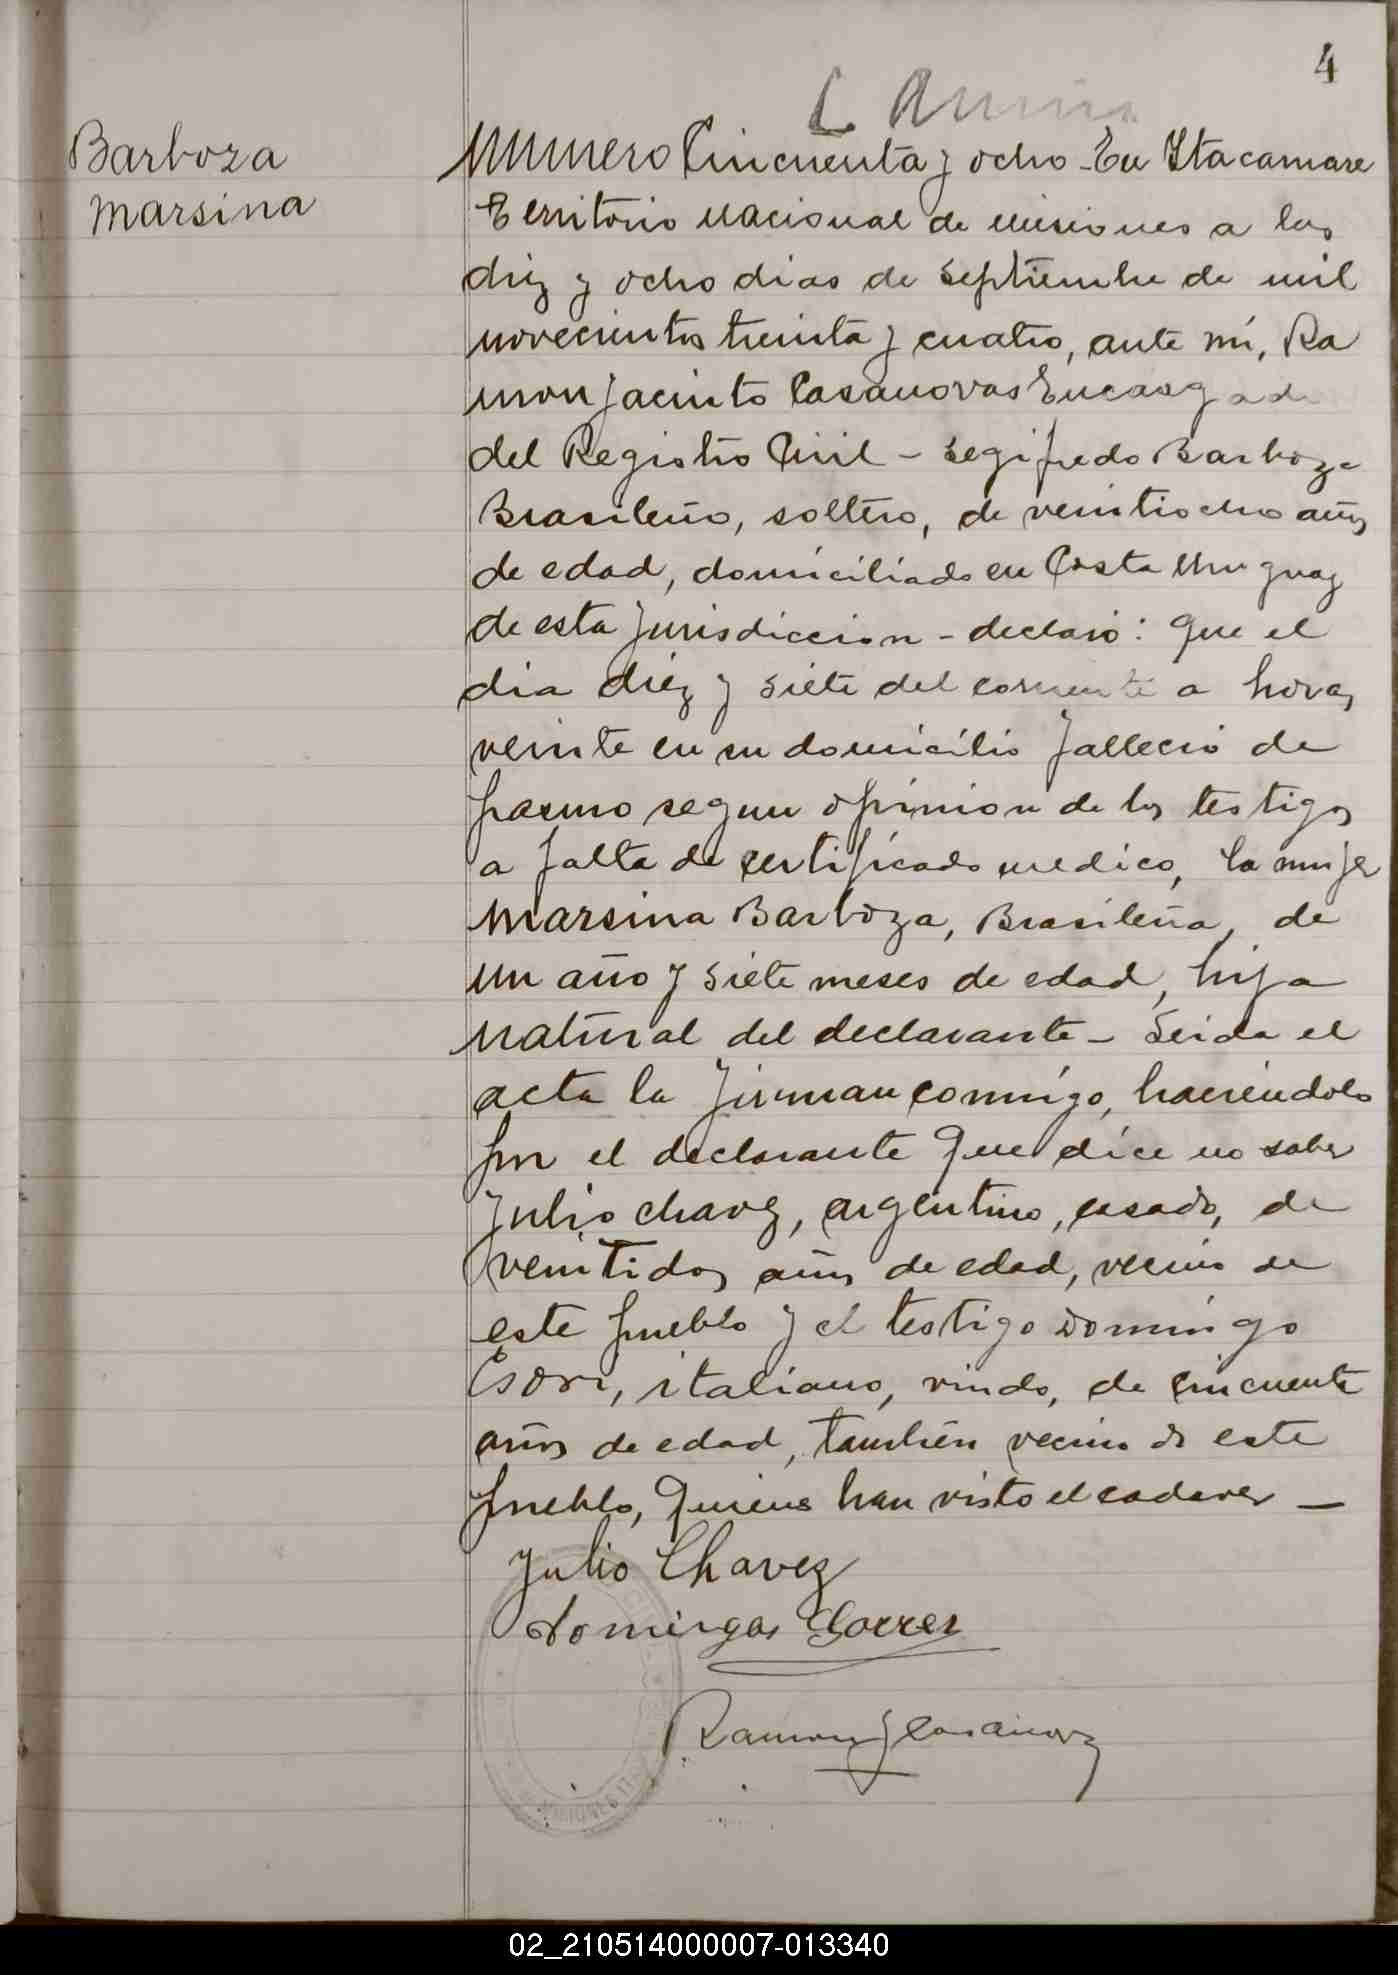 4
Barboza
Marsina
Numero Cincuenta y ocho - En Itacaruare
Territorio nacional de misiones a los
diez y ocho dias de Septiembre de mil
novecientos treinta y cuatro, ante mí, Ra
mon Jacinto Casanovas Encargado
del Registro Civil - Segifredo Barboza
Brasileño, soltero, de veintiocho años
de edad, domiciliado en Costa Uruguay
de esta Jurisdiccion - declaró: Que el
dia diez y siete del corriente a horas
veinte en su domicilio falleció de
pasmo segun opinion de los testigos
a falta de certificado medico, la mujer
Marsina Barboza, Brasileña, de
un año y siete meses de edad, hija
natural del declarante - Leida el
acta la firman conmigo, haciendolo
por el declarante Que dice no saber
Julio Chavez, argentino, casado, de
veintidos años de edad, vecino de
este pueblo y el testigo Domingo
italiano, viudo, de cincuenta
años de edad, también vecino de este
pueblo, Quienes han visto el cadaver -
Julio Chavez
Domingo
Ramon J Casanovas
MISIONES
02_210514000007-013340